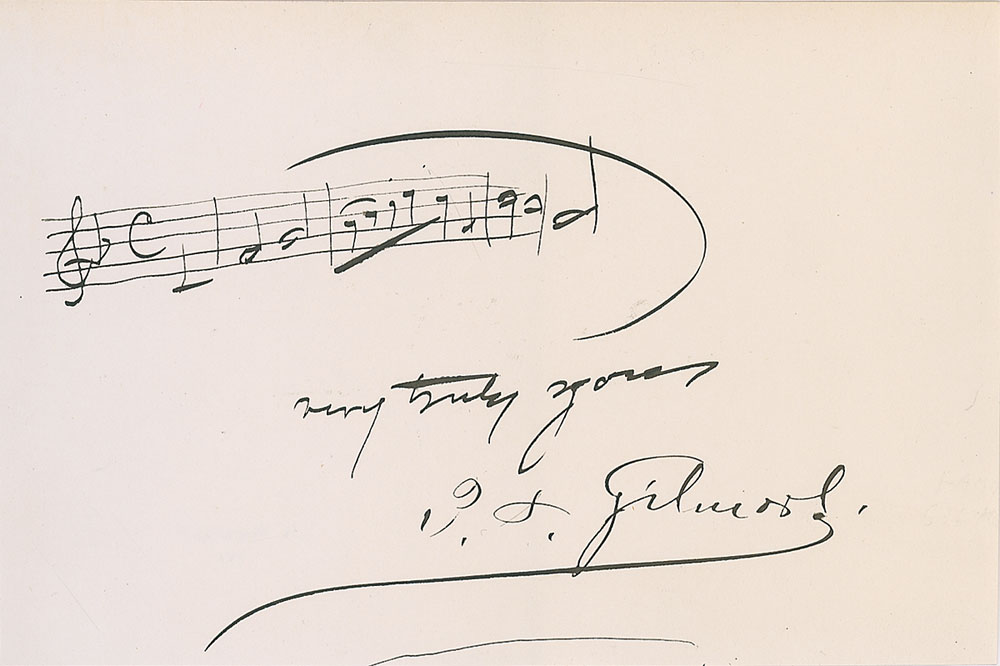 very truly yours
P. S. Gilmore.